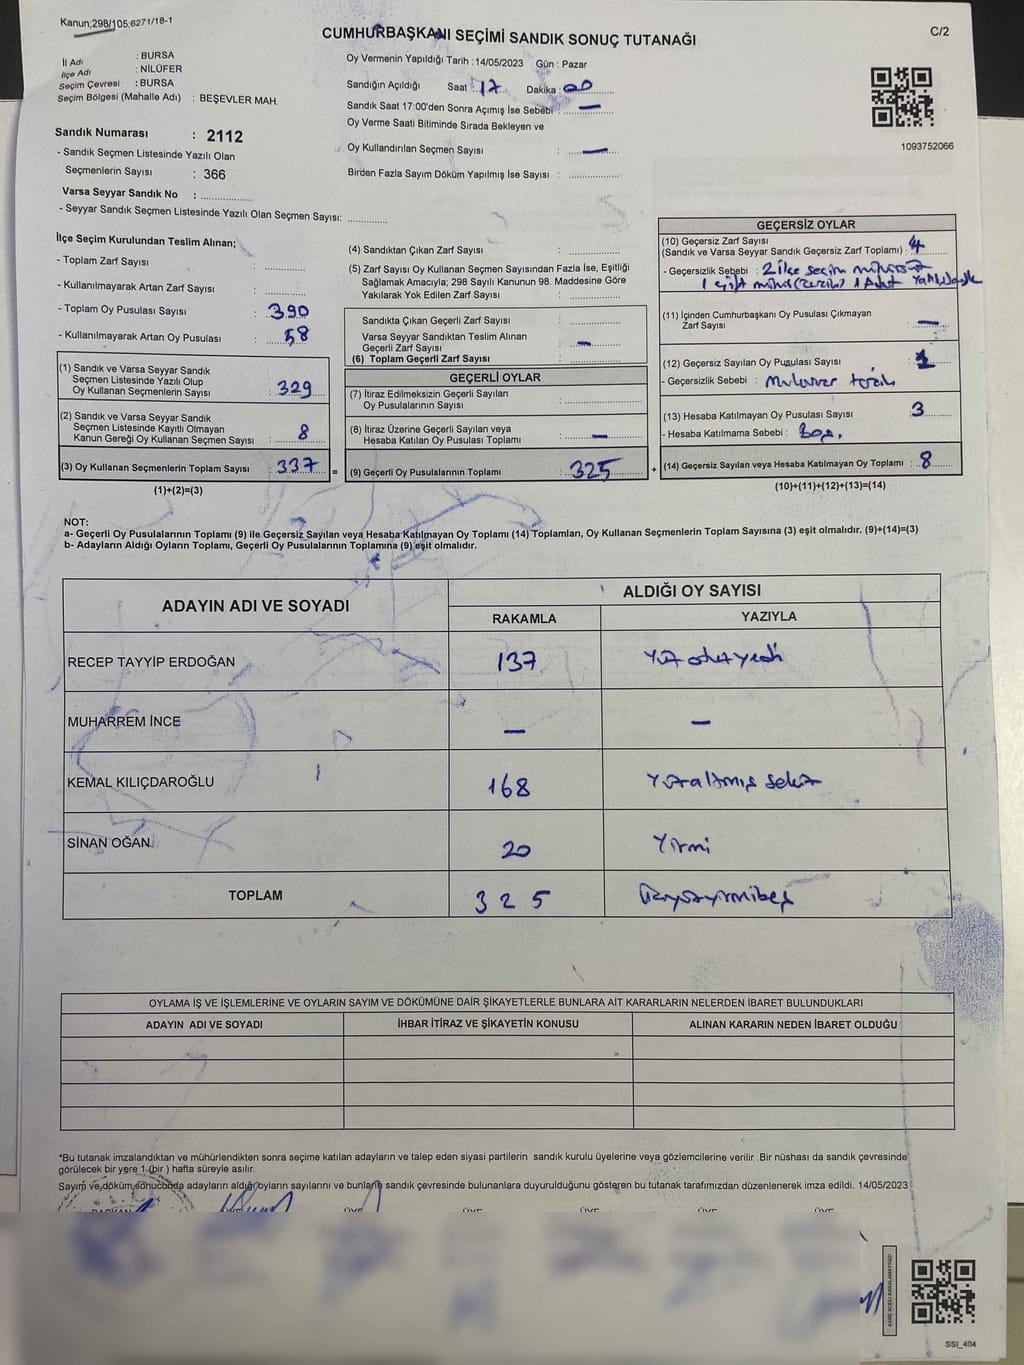 Kanun;298/105;6271/18-1
CUMHURBAŞKANI SEÇİMİ SANDIK SONUÇ TUTANAĞI
C/2
İl Adı : BURSA
İlçe Adı : NİLÜFER
Seçim Çevresi : BURSA
Seçim Bölgesi (Mahalle Adı) : BEŞEVLER MAH.
Sandık Numarası : 2112
- Sandık Seçmen Listesinde Yazılı Olan
Seçmenlerin Sayısı : 366
Varsa Seyyar Sandık No : ................
- Seyyar Sandık Seçmen Listesinde Yazılı Olan Seçmen Sayısı: ............
Oy Vermenin Yapıldığı Tarih : 14/05/2023 Gün : Pazar
Sandığın Açıldığı Saat : 17 Dakika : 00
Sandık Saat 17:00'den Sonra Açımış İse Sebebi : —
Oy Verme Saati Bitiminde Sırada Bekleyen ve
Oy Kullandırılan Seçmen Sayısı : —
Birden Fazla Sayım Döküm Yapılmış İse Sayısı : ................
1093752066
İlçe Seçim Kurulundan Teslim Alınan;
- Toplam Zarf Sayısı : ............
- Kullanılmayarak Artan Zarf Sayısı : ............
- Toplam Oy Pusulası Sayısı : 390
- Kullanılmayarak Artan Oy Pusulası : 58
(1) Sandık ve Varsa Seyyar Sandık
Seçmen Listesinde Yazılı Olup
Oy Kullanan Seçmenlerin Sayısı : 329
(2) Sandık ve Varsa Seyyar Sandık
Seçmen Listesinde Kayıtlı Olmayan
Kanun Gereği Oy Kullanan Seçmen Sayısı : 8
(3) Oy Kullanan Seçmenlerin Toplam Sayısı : 337 =
(1)+(2)=(3)
(4) Sandıktan Çıkan Zarf Sayısı : ................
(5) Zarf Sayısı Oy Kullanan Seçmen Sayısından Fazla İse, Eşitliği
Sağlamak Amacıyla; 298 Sayılı Kanunun 98. Maddesine Göre
Yakılarak Yok Edilen Zarf Sayısı : ................
Sandıkta Çıkan Geçerli Zarf Sayısı : ................
Varsa Seyyar Sandıktan Teslim Alınan
Geçerli Zarf Sayısı : —
(6) Toplam Geçerli Zarf Sayısı : ................
GEÇERLİ OYLAR
(7) İtiraz Edilmeksizin Geçerli Sayılan
Oy Pusulalarının Sayısı : ................
(8) İtiraz Üzerine Geçerli Sayılan veya
Hesaba Katılan Oy Pusulası Toplamı : —
(9) Geçerli Oy Pusulalarının Toplamı : 325 +
GEÇERSİZ OYLAR
(10) Geçersiz Zarf Sayısı
(Sandık ve Varsa Seyyar Sandık Geçersiz Zarf Toplamı) : 4
- Geçersizlik Sebebi : 2 ilçe seçim
(11) İçinden Cumhurbaşkanı Oy Pusulası Çıkmayan
Zarf Sayısı : —
(12) Geçersiz Sayılan Oy Pusulası Sayısı : 1
- Geçersizlik Sebebi :
(13) Hesaba Katılmayan Oy Pusulası Sayısı : 3
- Hesaba Katılmama Sebebi : Boş.
(14) Geçersiz Sayılan veya Hesaba Katılmayan Oy Toplamı : 8
(10)+(11)+(12)+(13)=(14)
NOT:
a- Geçerli Oy Pusulalarının Toplamı (9) ile Geçersiz Sayılan veya Hesaba Katılmayan Oy Toplamı (14) Toplamları, Oy Kullanan Seçmenlerin Toplam Sayısına (3) eşit olmalıdır. (9)+(14)=(3)
b- Adayların Aldığı Oyların Toplamı, Geçerli Oy Pusulalarının Toplamına (9) eşit olmalıdır.
ADAYIN ADI VE SOYADI
ALDIĞI OY SAYISI
RAKAMLA YAZIYLA
RECEP TAYYİP ERDOĞAN 137 Yüz otuz yedi
MUHARREM İNCE — —
KEMAL KILIÇDAROĞLU 168 Yüz altmış sekiz
SİNAN OĞAN 20 Yirmi
TOPLAM 325 Üçyüzyirmibeş
OYLAMA İŞ VE İŞLEMLERİNE VE OYLARIN SAYIM VE DÖKÜMÜNE DAİR ŞİKAYETLERLE BUNLARA AİT KARARLARIN NELERDEN İBARET BULUNDUKLARI
ADAYIN ADI VE SOYADI İHBAR İTİRAZ VE ŞİKAYETİN KONUSU ALINAN KARARIN NEDEN İBARET OLDUĞU
*Bu tutanak imzalandıktan ve mühürlendikten sonra seçime katılan adayların ve talep eden siyasi partilerin sandık kurulu üyelerine veya gözlemcilerine verilir .Bir nüshası da sandık çevresinde
görülecek bir yere 1 (bir ) hafta süreyle asılır.
Sayım ve döküm sonucunda adayların aldığı oyların sayılarını ve bunların sandık çevresinde bulunanlara duyurulduğunu gösteren bu tutanak tarafımızdan düzenlenerek imza edildi. 14/05/2023
BAŞKAN ÜYE ÜYE ÜYE ÜYE ÜYE
KARE KODU KARALAMAYINIZ!
SSI_404